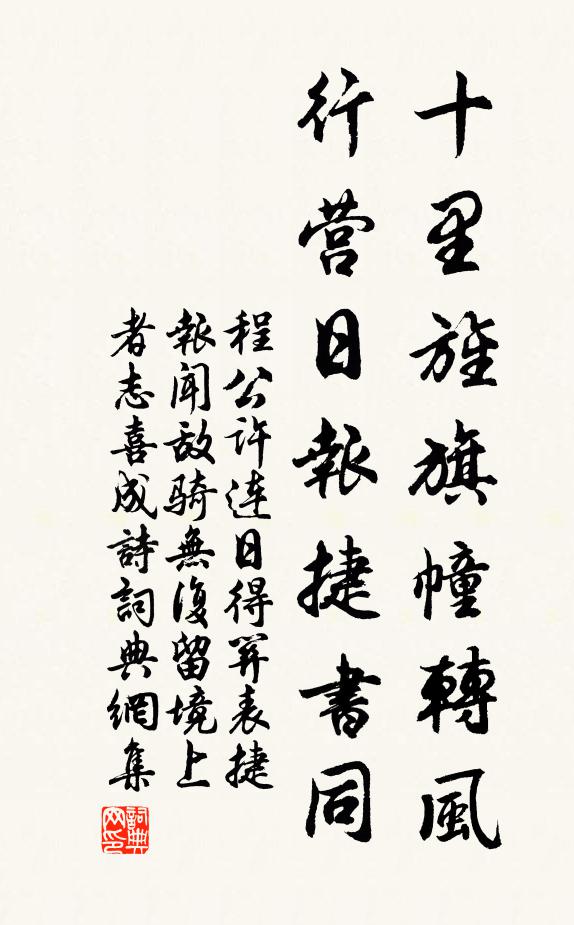 十里旌旗幢轉風
行营日報捷書同
程公許連日得羿表捷
報闻敌骑無復留境上
者志喜成詩詞典網集
詞典网印